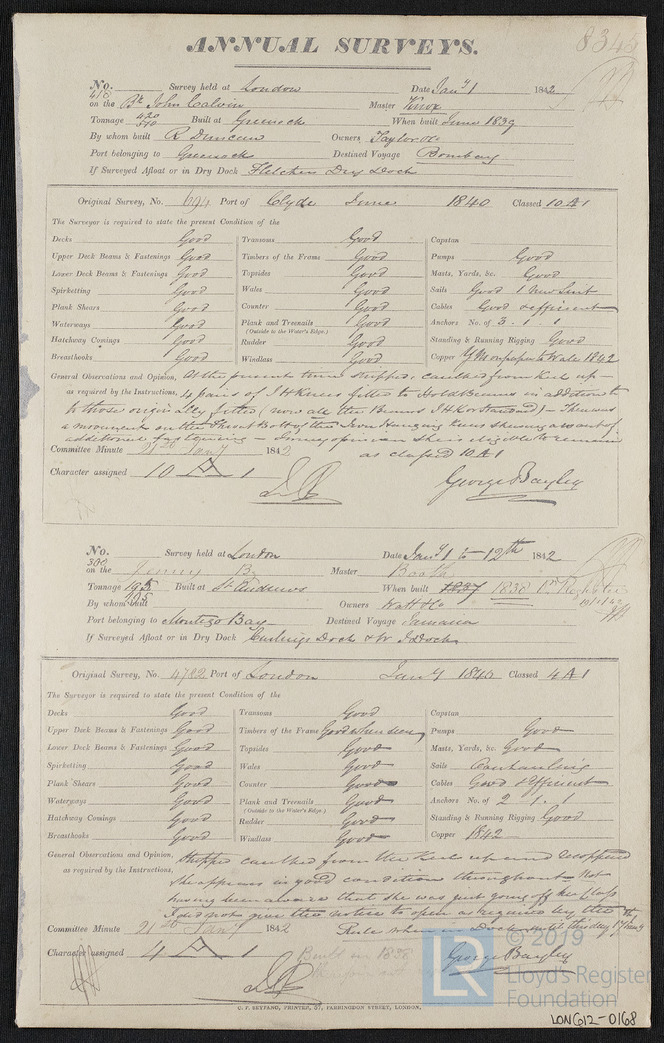 8345
ANNUAL SURVEYS.
No. 418 Survey held at London Date Jany 1 1842
on the Bk John Calvin Master Knox
Tonnage 420 510 Built at Greenock When built June 1839
By whom built R Duncan Owners Taylor &Co
Port belonging to Greenock Destined Voyage Bombay
If Surveyed Afloat or in Dry Dock Fletchers Dry Dock
Original Survey, No. 694 Port of Clyde June 1840 Classed 10 A 1
The Surveyor is required to state the present Condition of the
Decks Good Transoms Good Capstan
Upper Deck Beams & Fastenings Good Timbers of the Frame Good Pumps Good
Lower Deck Beams & Fastenings Good Topsides Good Masts, Yards, &c. Good
Spirketting Good Wales Good Sails Good 1 New Suit
Plank Shears Good Counter Good Cables Good & efficient
Waterways Good Plank and Treenails Good Anchors No. of 3. 1. 1
(Outside to the Water's Edge.)
Hatchway Comings Good Rudder Good Standing & Running Rigging Good
Breasthooks Good Windlass Good Copper Y M on paper to Wale 1842
General Observations and Opinion, At the present time stripped, caulked from keel up
as required by the Instructions, 4 pairs of I H Knees fitted to Hold Beams in addition to
to those originally fitted (now all the Beams I H K or Standard) - There was
a movement on the Throat Bolt of the Iron Hanging Knees shewing a want of
additional fastening - I am of opinion she is eligible to remain
as classed 10 A 1
Committee Minute 21st Jany 1842
Character assigned 10 A 1
George Bayley
No. 300 Survey held at London Date Jany 1 to 12th 1842
on the Jenny Bg Master Booth
Tonnage 195 195 Built at St Andrews When built 1837 1838 Pr Register
By whom built Owners Watt & Co
Port belonging to Montego Bay Destined Voyage Jamaica
If Surveyed Afloat or in Dry Dock Curlings Dock & W I Docks
Original Survey, No. 4782 Port of London Jany 1840 Classed 4 A 1
The Surveyor is required to state the present Condition of the
Decks Good Transoms Good Capstan
Upper Deck Beams & Fastenings Good Timbers of the Frame Good where seen Pumps Good
Lower Deck Beams & Fastenings Good Topsides Good Masts, Yards, &c. Good
Spirketting Good Wales Good Sails Overhauling
Plank Shears Good Counter Good Cables Good & Efficient
Waterways Good Plank and Treenails Good Anchors No. of 2 . 1 . 1
(Outside to the Water's Edge.)
Hatchway Comings Good Rudder Good Standing & Running Rigging Good
Breasthooks Good Windlass Good Copper 1842
General Observations and Opinion, Stripped caulked from the Keel up and recoppered
as required by the Instructions, She appears in good condition throughout - Not
having been aware that she was just going off her Class
I did not give the notice to open as required by the
Rule when in Dock until this day 17 Jany
Committee Minute 21st Jany 1842
Character assigned 4 A 1
Built in 1838
George Bayley
C. F. SEYFANG, PRINTER, 57, FARRINGDON STREET, LONDON.
LR
© 2019
Lloyd's Register
Foundation
LON612-0168